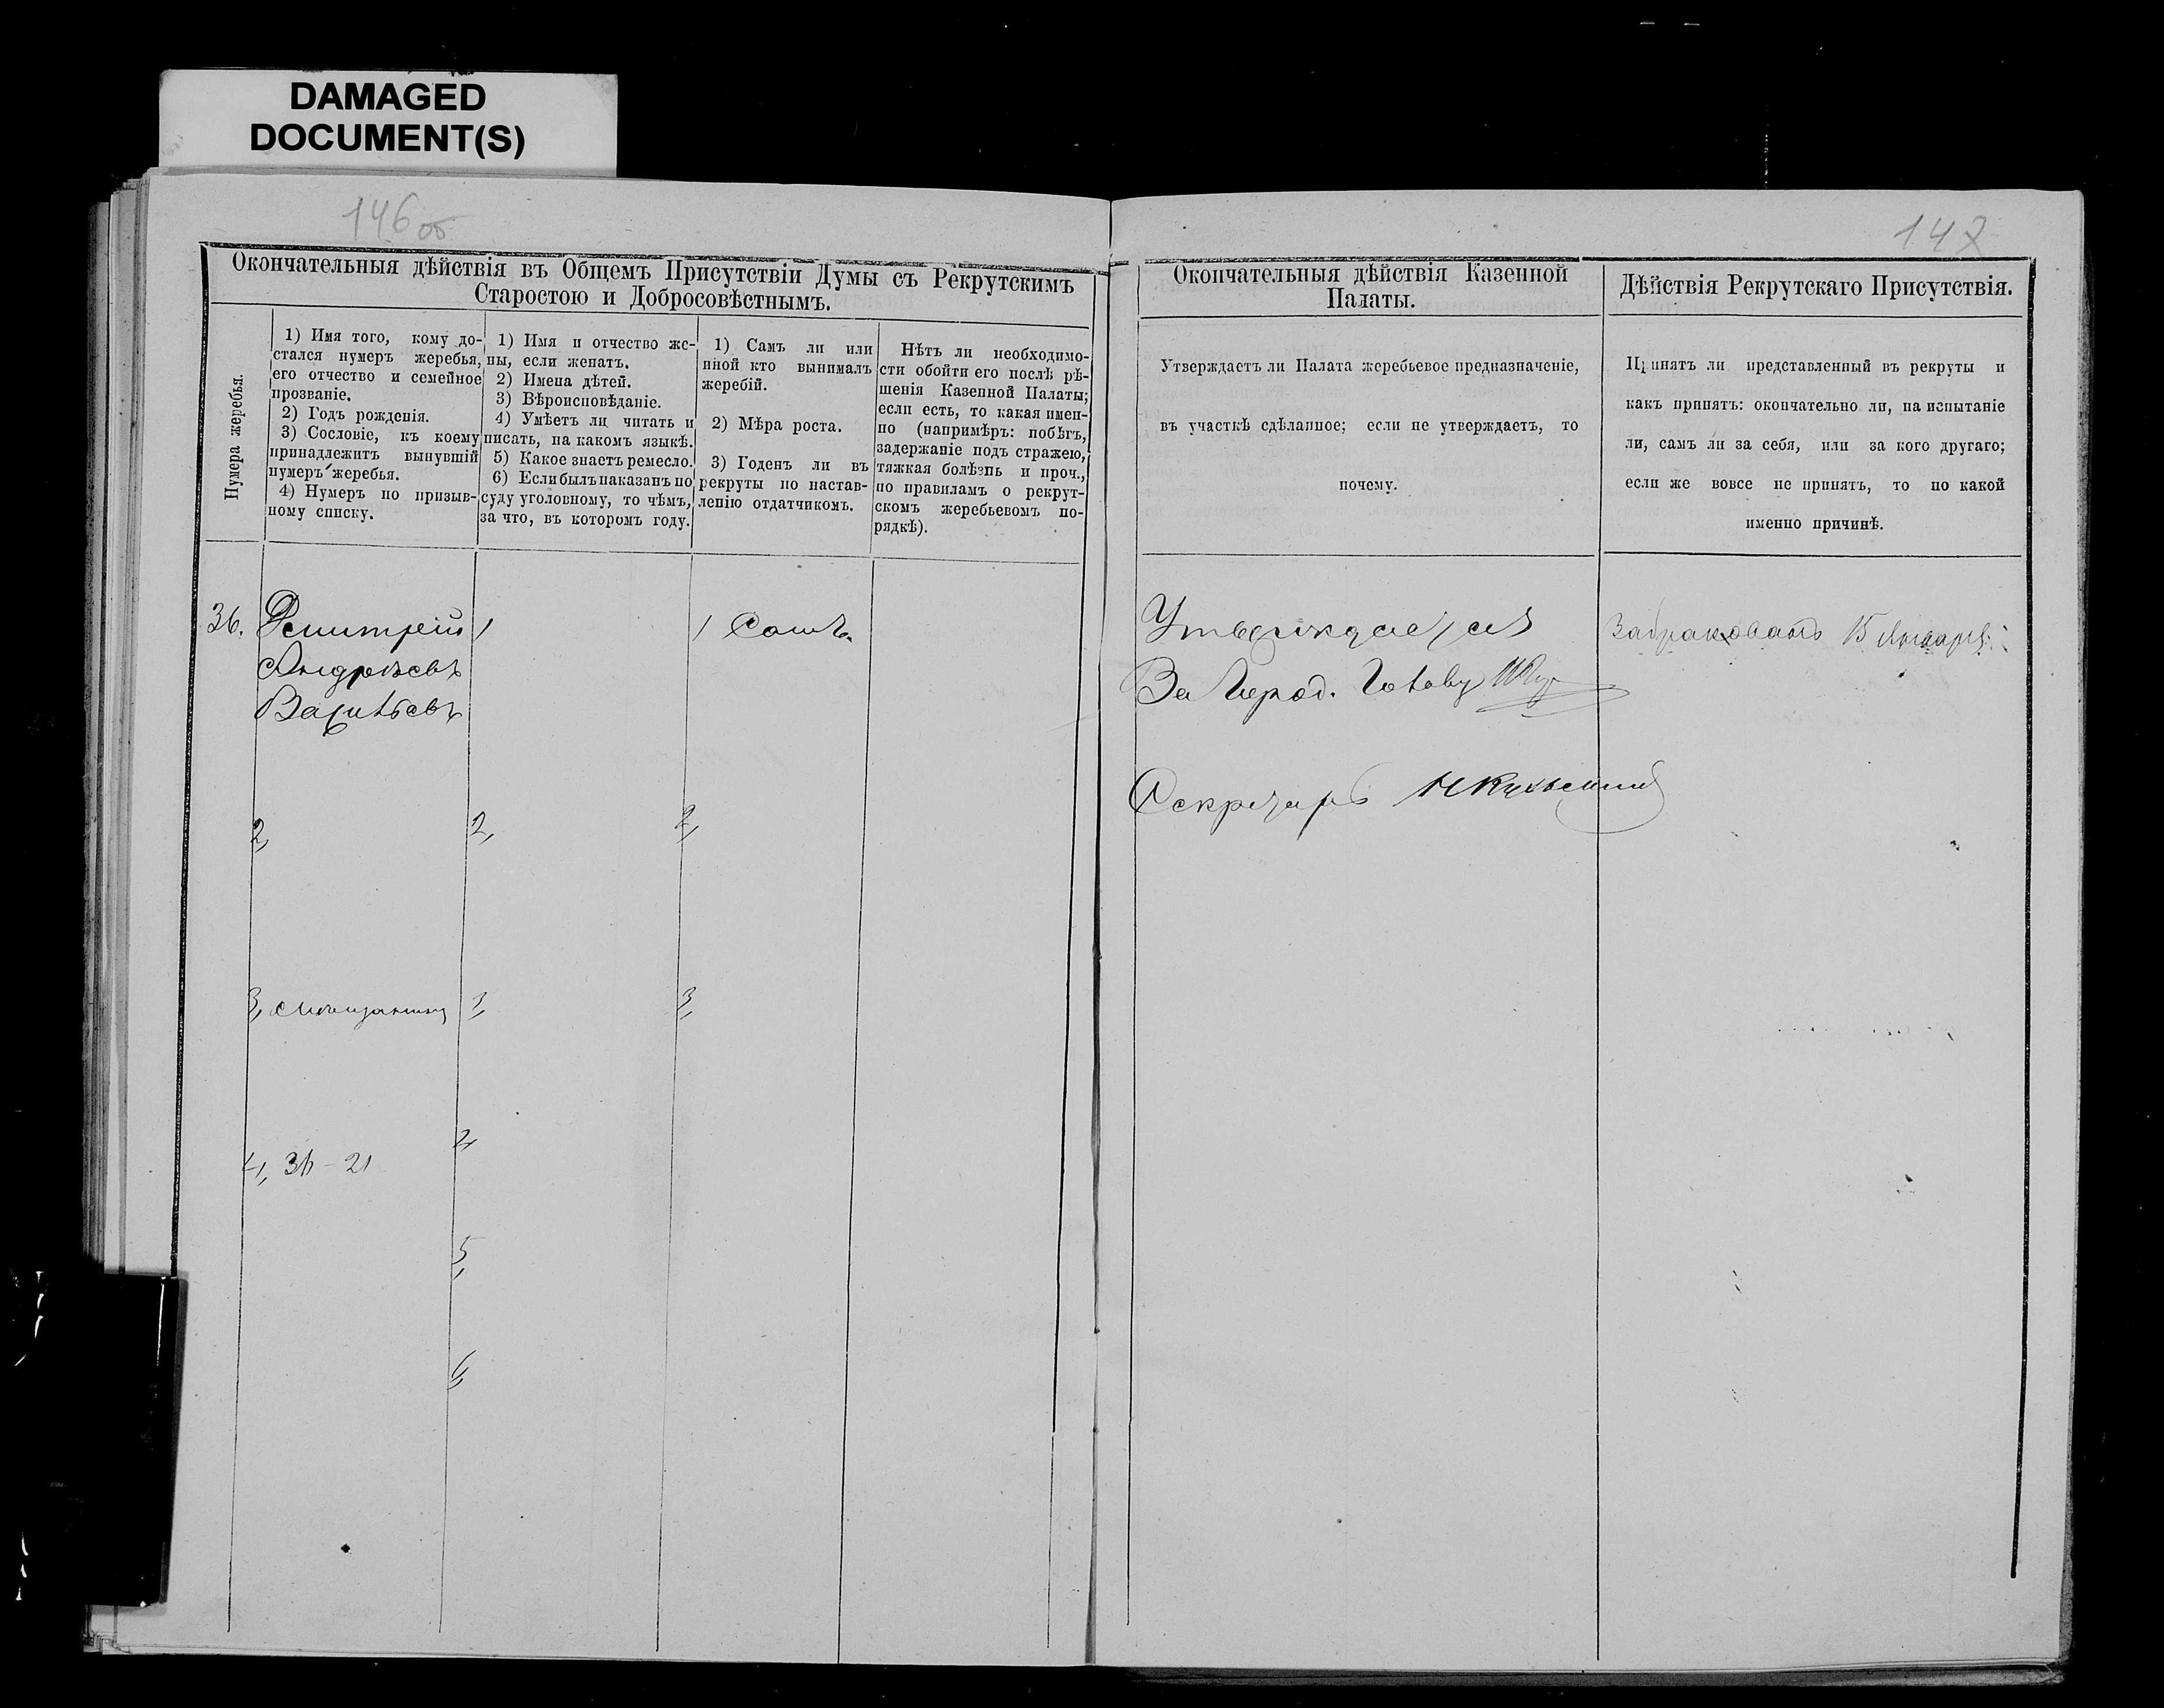 DAMAGED
DOCUMENT(S)
146 об
147
Окончательныя дѣйствія въ Общемъ Присутствіи Думы съ Рекрутскимъ
Старостою и Добросовѣстнымъ.
Нумера жеребья.
1) Имя того, кому до-
стался нумеръ жеребья,
его отчество и семейное
прозваніе.
2) Годъ рожденія.
3) Сословіе, къ коему
принадлежитъ вынувшій
нумеръ жеребья.
4) Нумеръ по призыв-
ному списку.
1) Имя и отчество же-
ны, если женатъ.
2) Имена дѣтей.
3) Вѣроисповѣданіе.
4) Умѣетъ ли читать и
писать, на какомъ языкѣ.
5) Какое знаетъ ремесло.
6) Если былъ наказанъ по
суду уголовному, то чѣмъ,
за что, въ которомъ году.
1) Самъ ли или
иной кто вынималъ
жеребій.
2) Мѣра роста.
3) Годенъ ли въ
рекруты по настав-
ленію отдатчикомъ.
Нѣтъ ли необходимо-
сти обойти его послѣ рѣ-
шенія Казенной Палаты;
если есть, то какая имен-
но (напримѣръ: побѣгъ,
задержаніе подъ стражею,
тяжкая болѣзнь и проч.,
по правиламъ о рекрут-
скомъ жеребьевомъ по-
рядкѣ).
Окончательныя дѣйствія Казенной
Палаты.
Утверждаетъ ли Палата жеребьевое предназначеніе,
въ участкѣ сдѣланное; если не утверждаетъ, то
почему.
Дѣйствія Рекрутскаго Присутствія.
Принятъ ли представленный въ рекруты и
какъ принятъ: окончательно ли, на испытаніе
ли, самъ ли за себя, или за кого другаго;
если же вовсе не принятъ, то по какой
именно причинѣ.
36.
Дмитрей
Андреевъ
Васильевъ
2,
3, Мѣщанинъ
4, 36 – 21
1
2,
3,
4,
5,
6,
1 Самъ
2,
3,
Утверждается
За Город. Голову
Секретарь
Забракованъ 15 Января